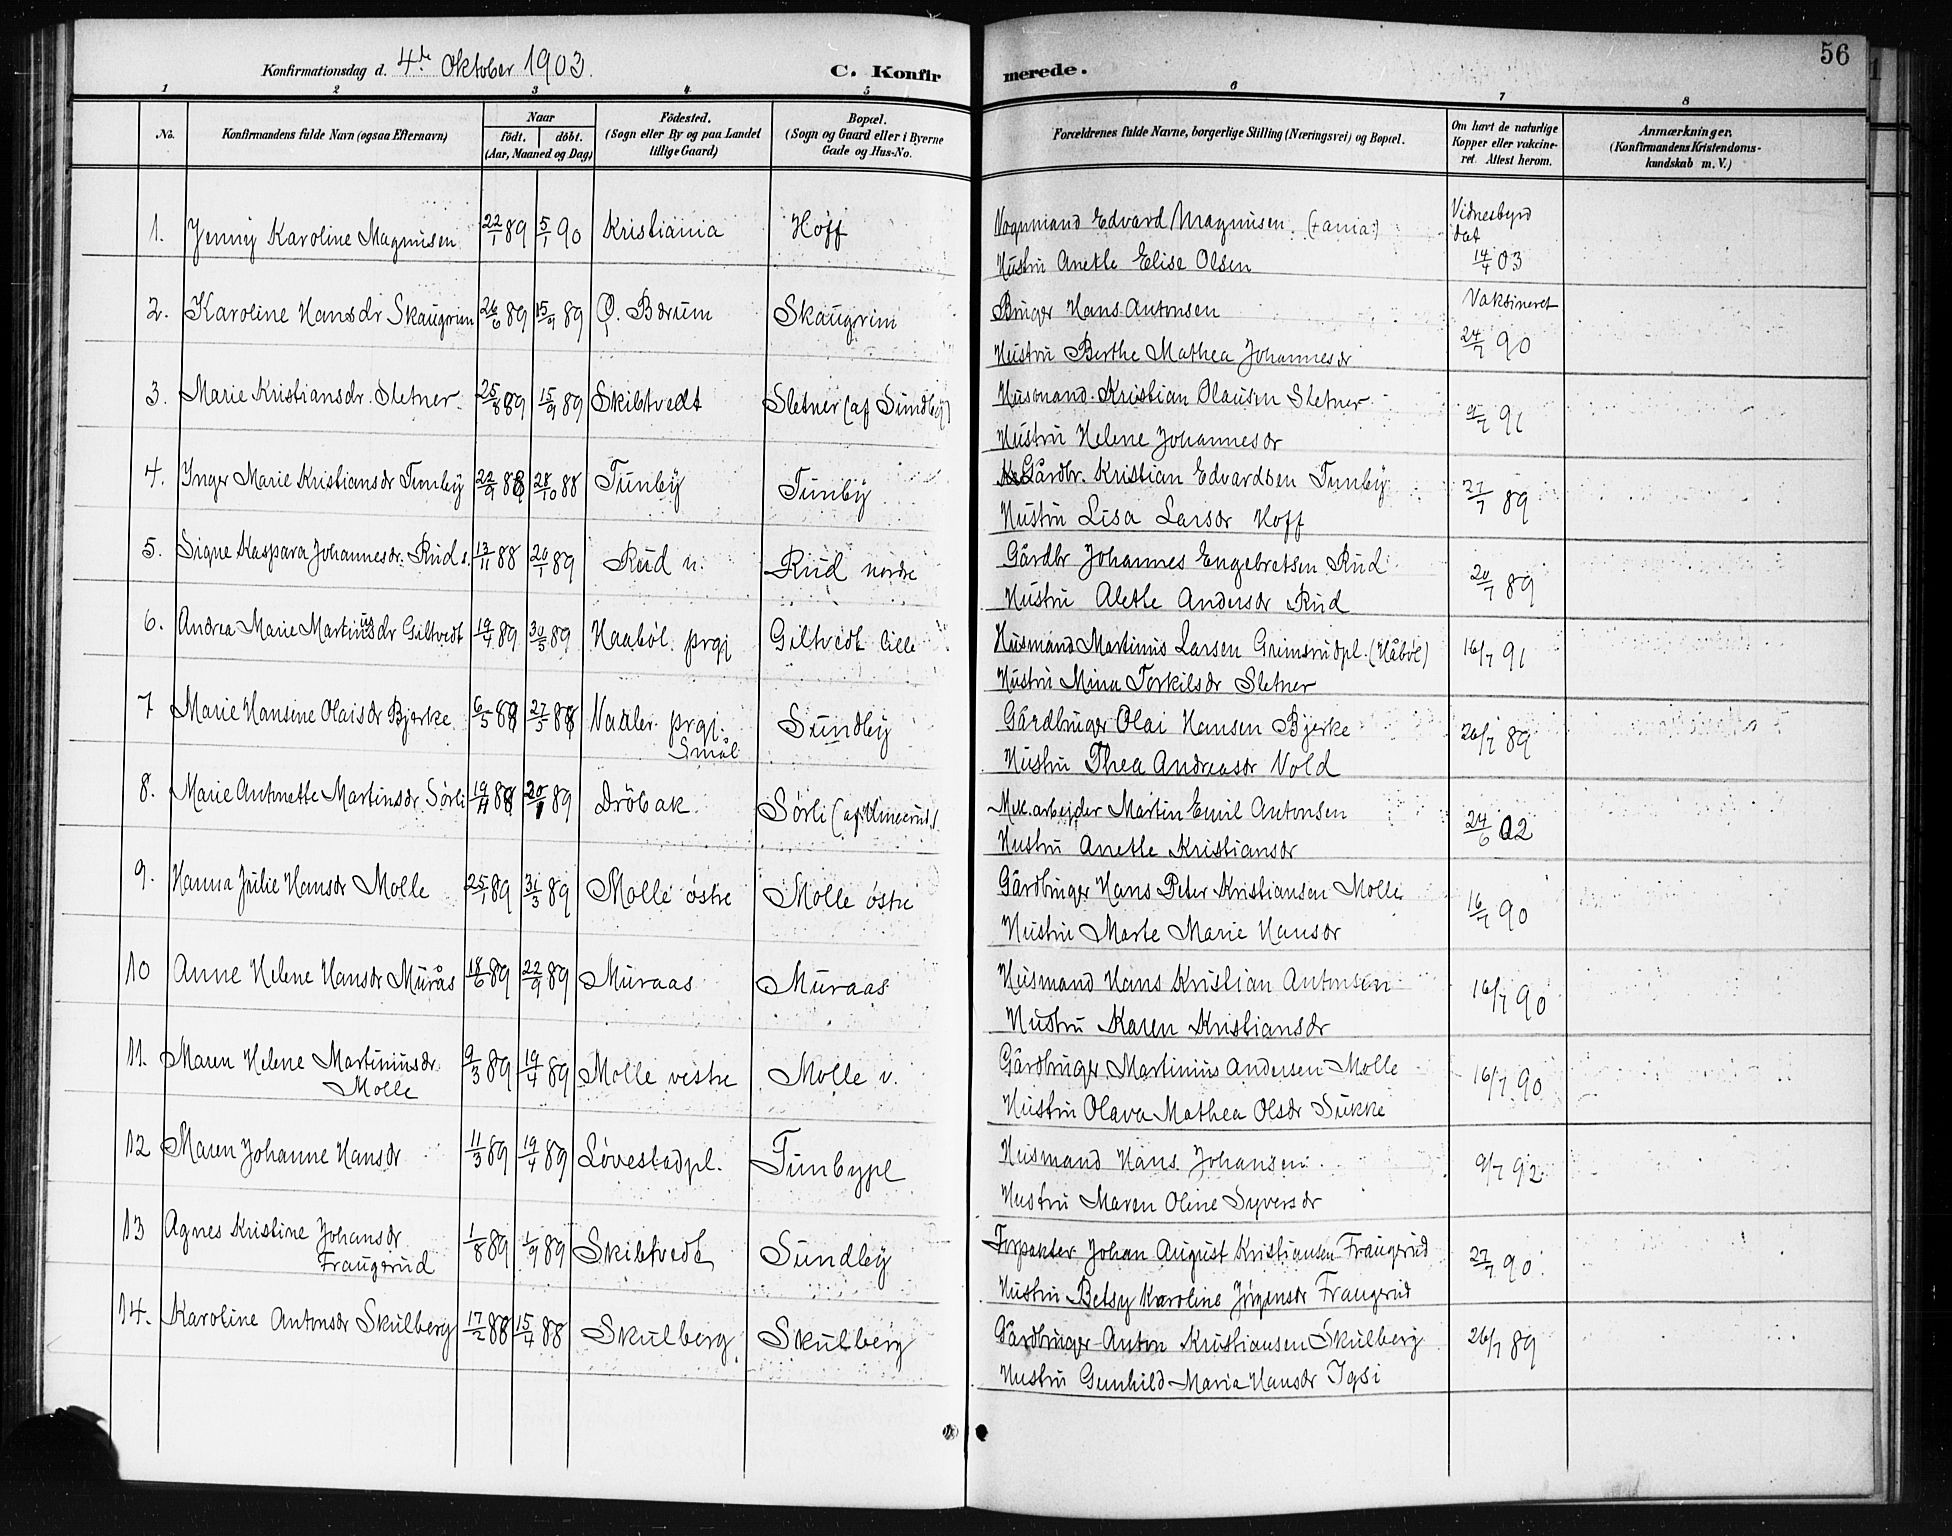 56
Konfirmationsdag d. 4de Oktober 1903.
C. Konfirmerede.
1 2 3 4 5 6 7 8
No.
Konfirmandens fulde Navn (ogsaa Efternavn)
Naar
födt. döbt.
(Aar, Maaned og Dag)
Födested.
(Sogn eller By og paa Landet
tillige Gaard)
Bopæl.
(Sogn og Gaard eller i Byerne
Gade og Hus-No.
Forældrenes fulde Navne, borgerlige Stilling (Næringsvei) og Bopæl.
Om havt de naturlige
Kopper eller vakcine-
ret. Attest herom.
Anmærkninger.
(Konfirmandens Kristendoms-
kundskab m. V.)
1. Jenny Karoline Magnusen 22/1 89 5/1 90 Kristiania Hoff Vognmand Edvard Magnusen (+ania) Vidnesbyrd
dat
Hustru Anette Elise Olsen 14/4 03
2. Karoline Hansdr Skaugrim 26/6 89 15/9 89 Ö. Bærum Skaugrim Bruger Hans Antonsen Vaksineret
Hustru Berthe Mathea Johannesdr 24/7 90
3. Marie Kristiansdr. Sletner. 25/8 89 15/9 89 Skibtvedt Sletner (af Sundby) Husmand Kristian Olausen Sletner
Hustru Helene Johannesdr 9/7 91
4. Inger Marie Kristiansdr Tunby 22/9 88 28/10 88 Tunby Tunby Gårdbr. Kristian Edvardsen Tunby
Hustru Lisa Larsdr Hoff 27/7 89
5. Signe Kaspara Johannesdr. Rud n. 13/11 88 20/1 89 Rud n. Rud nordre Gårdbr Johannes Engebretsen Rud
Hustru Alette Andersdr Rud 20/7 89
6. Andrea Marie Martinusdr Giltvedt 19/4 89 30/5 89 Haaböl prgj Giltvedt lille Husmand Martinus Larsen Grimsrudpl. (Håböl) 16/7 91
Hustru Mina Torkilsdr Sletner
7 Marie Hansine Olaisdr Bjerke 6/5 88 27/5 88 Vaaler prgj.
Smål. Sundby Gårdbruger Olai Hansen Bjerke 26/7 89
Hustru Thea Andreasdr Vold
8. Marie Antonette Martinsdr Sørli 19/11 88 20/1 89 Dröbak Sörli Mek. arbejder Martin Emil Antonsen
Hustru Anette Kristiansdr 24/6 02
9. Hanna Julie Hansdr Molle 25/1 89 31/3 89 Molle östre Molle östre Gårdbruger Hans Peter Kristiansen Molle
Hustru Marte Marie Hansdr 16/7 90
10 Anne Helene Hansdr Murås 18/6 89 22/9 89 Muraas Muraas Husmand Hans Kristian Antonsen 16/7 90
Hustru Karen Kristiansdr
11. Maren Helene Martiniusdr
Molle 9/3 89 19/4 89 Molle vestre Molle v. Gårdbruger Martinius Andersen Molle 16/7 90
Hustru Olava Mathea Olsdr Sukke
12 Maren Johanne Hansdr 11/3 89 19/4 89 Lövestadpl. Tunbypl Husmand Hans Johansen 9/7 92
Hustru Maren Oline Syversdr
13 Agnes Kristine Johansdr
Fraugerud 1/8 89 1/9 89 Skibtvedt Sundby Forpakter Johan August Kristiansen Fraugerud 27/7 90
Hustru Betsy Karoline Jörgensdr Fraugerud
14. Karoline Antonsdr Skulberg 17/2 88 15/4 88 Skulberg Skulberg Gårdbruger Anton Kristiansen Skulberg 26/7 89
Hustru Gunhild Maria Hansdr Igsi